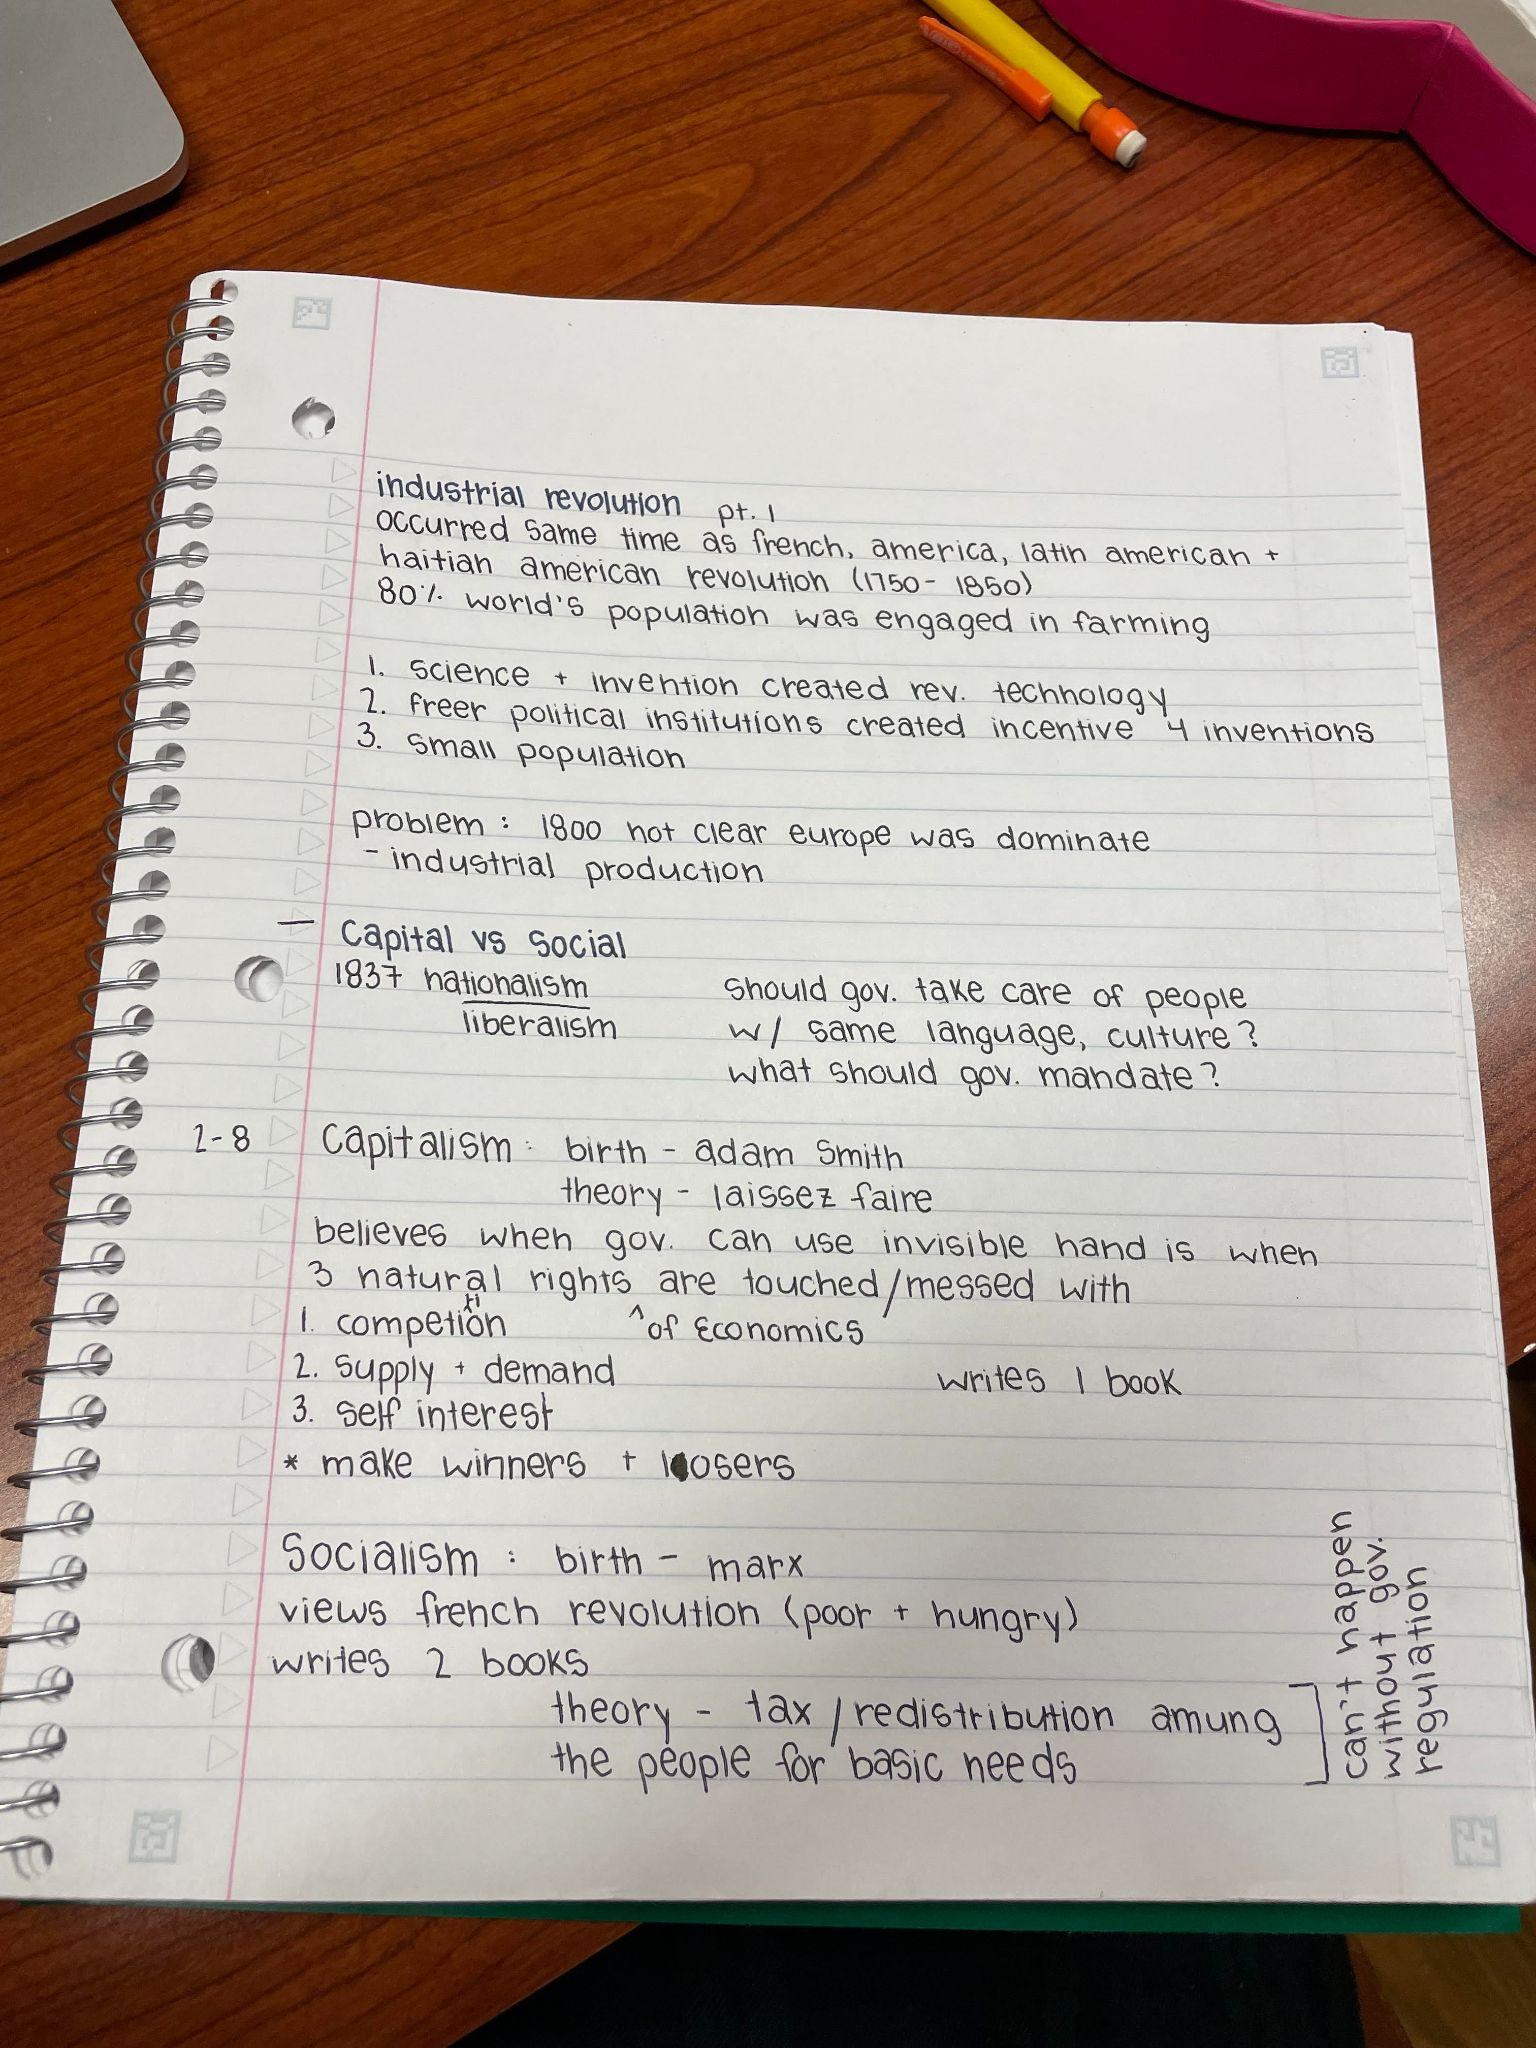 industrial revolution pt. 1
occurred same time as french, america, latin american +
haitian american revolution (1750 - 1850)
80% world's population was engaged in farming
1. science + invention created rev. technology
2. freer political institutions created incentive 4 inventions
3. small population
problem : 1800 not clear europe was dominate
- industrial production
— Capital vs Social
1837 nationalism
liberalism
should gov. take care of people
w/ same language, culture?
what should gov. mandate?
2-8 Capitalism : birth - adam smith
theory - laissez faire
believes when gov. can use invisible hand is when
3 natural rights are touched/messed with
^ of Economics
1. competition
2. supply + demand
writes 1 book
3. self interest
* make winners + loosers
Socialism : birth - marx
views french revolution (poor + hungry)
writes 2 books
theory - tax / redistribution amung
the people for basic needs
can't happen
without gov.
regulation